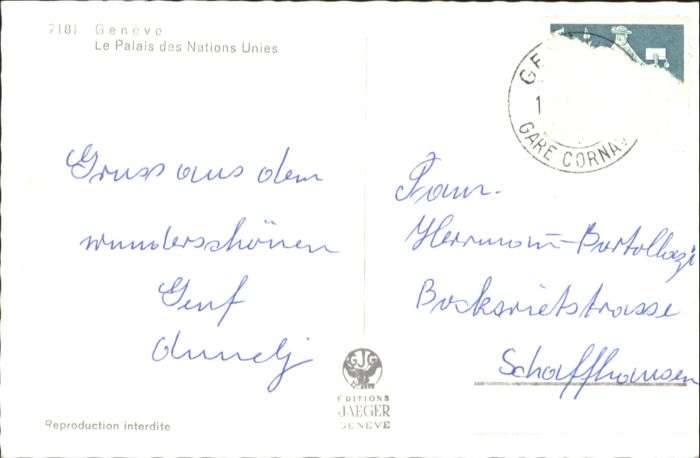 7181 Genève
Le Palais des Nations Unies
GE
1
GARE CORNA
Gruss aus dem
wunderschönen
Genf
Fam.
Herrmann-Bortolazzi
Bocksrietstrasse
Schaffhausen
GJG
EDITIONS
JAEGER
GENEVE
Reproduction interdite